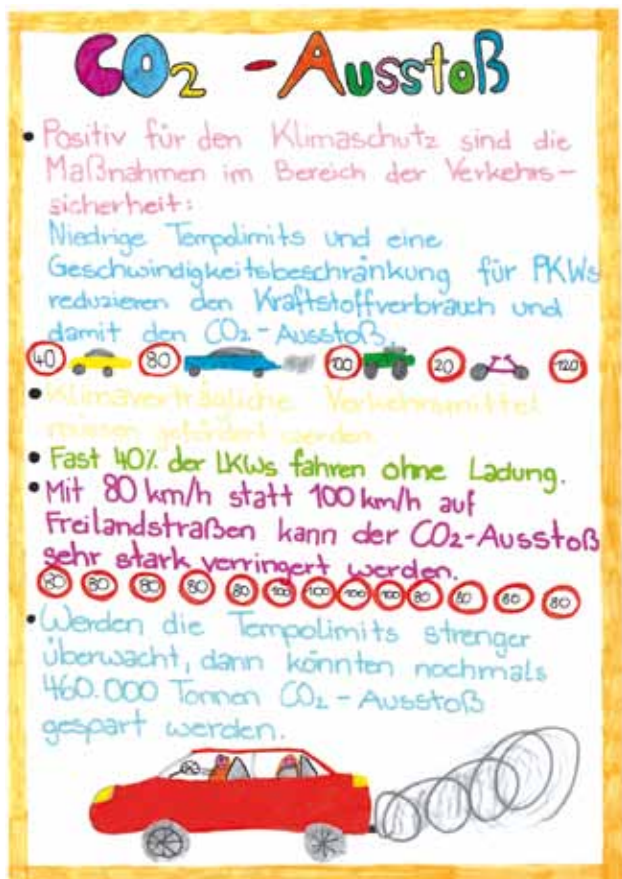 CO2 - Ausstoß
• Positiv für den Klimaschutz sind die
Maßnahmen im Bereich der Verkehrs-
sicherheit:
Niedrige Tempolimits und eine
Geschwindigkeitsbeschränkung für PKWs
reduzieren den Kraftstoffverbrauch und
damit den CO2-Ausstoß.
40 80 100 20 120
• Klimaverträgliche Verkehrsmittel
müssen gefördert werden.
• Fast 40% der LKWs fahren ohne Ladung.
• Mit 80 km/h statt 100 km/h auf
Freilandstraßen kann der CO2-Ausstoß
sehr stark verringert werden.
80 80 80 80 80 100 100 100 100 80 80 80 80
• Werden die Tempolimits strenger
überwacht, dann könnten nochmals
460.000 Tonnen CO2-Ausstoß
gespart werden.